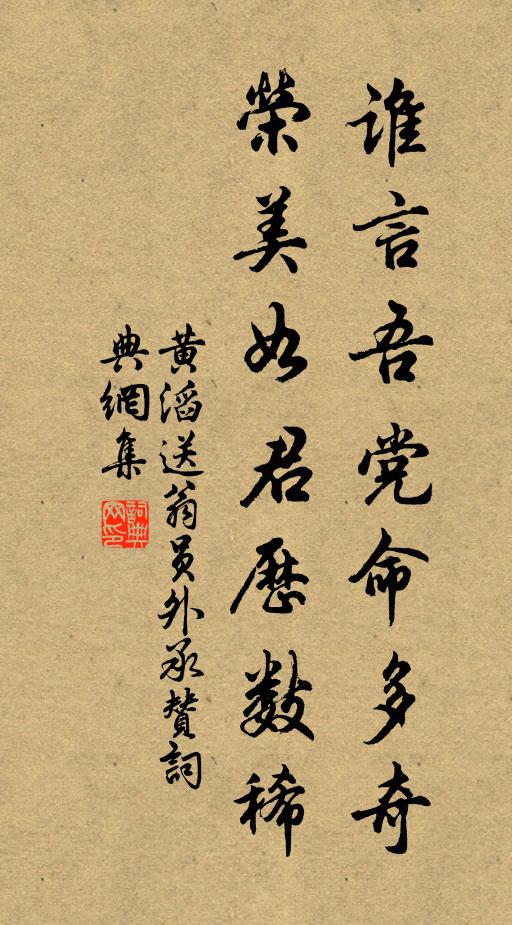 谁言吾党命多奇
荣美如君历数稀
黄滔送翁员外承赞词
典網集
詞典網印